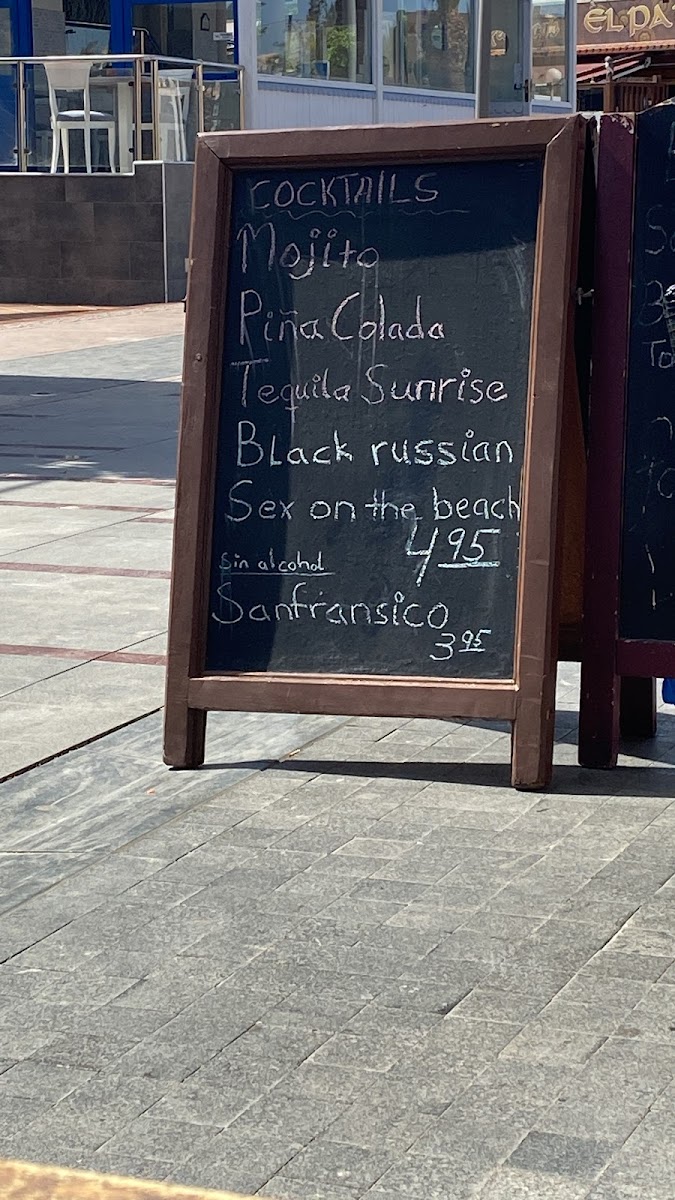 EL PA
COCKTAILS
Mojito
Piña Colada
Tequila Sunrise
Black russian
Sex on the beach
4,95
Sin alcohol
Sanfransico
3,95